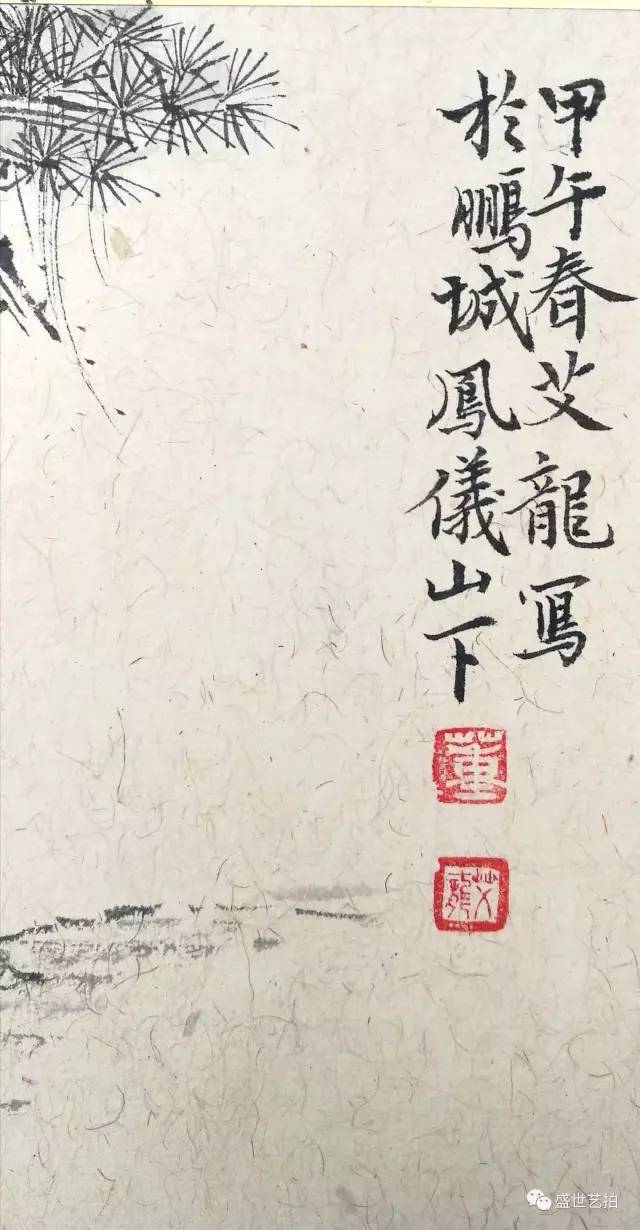 甲午春艾龍寫
於鵬城鳳儀山下
董
艾龍
盛世艺拍